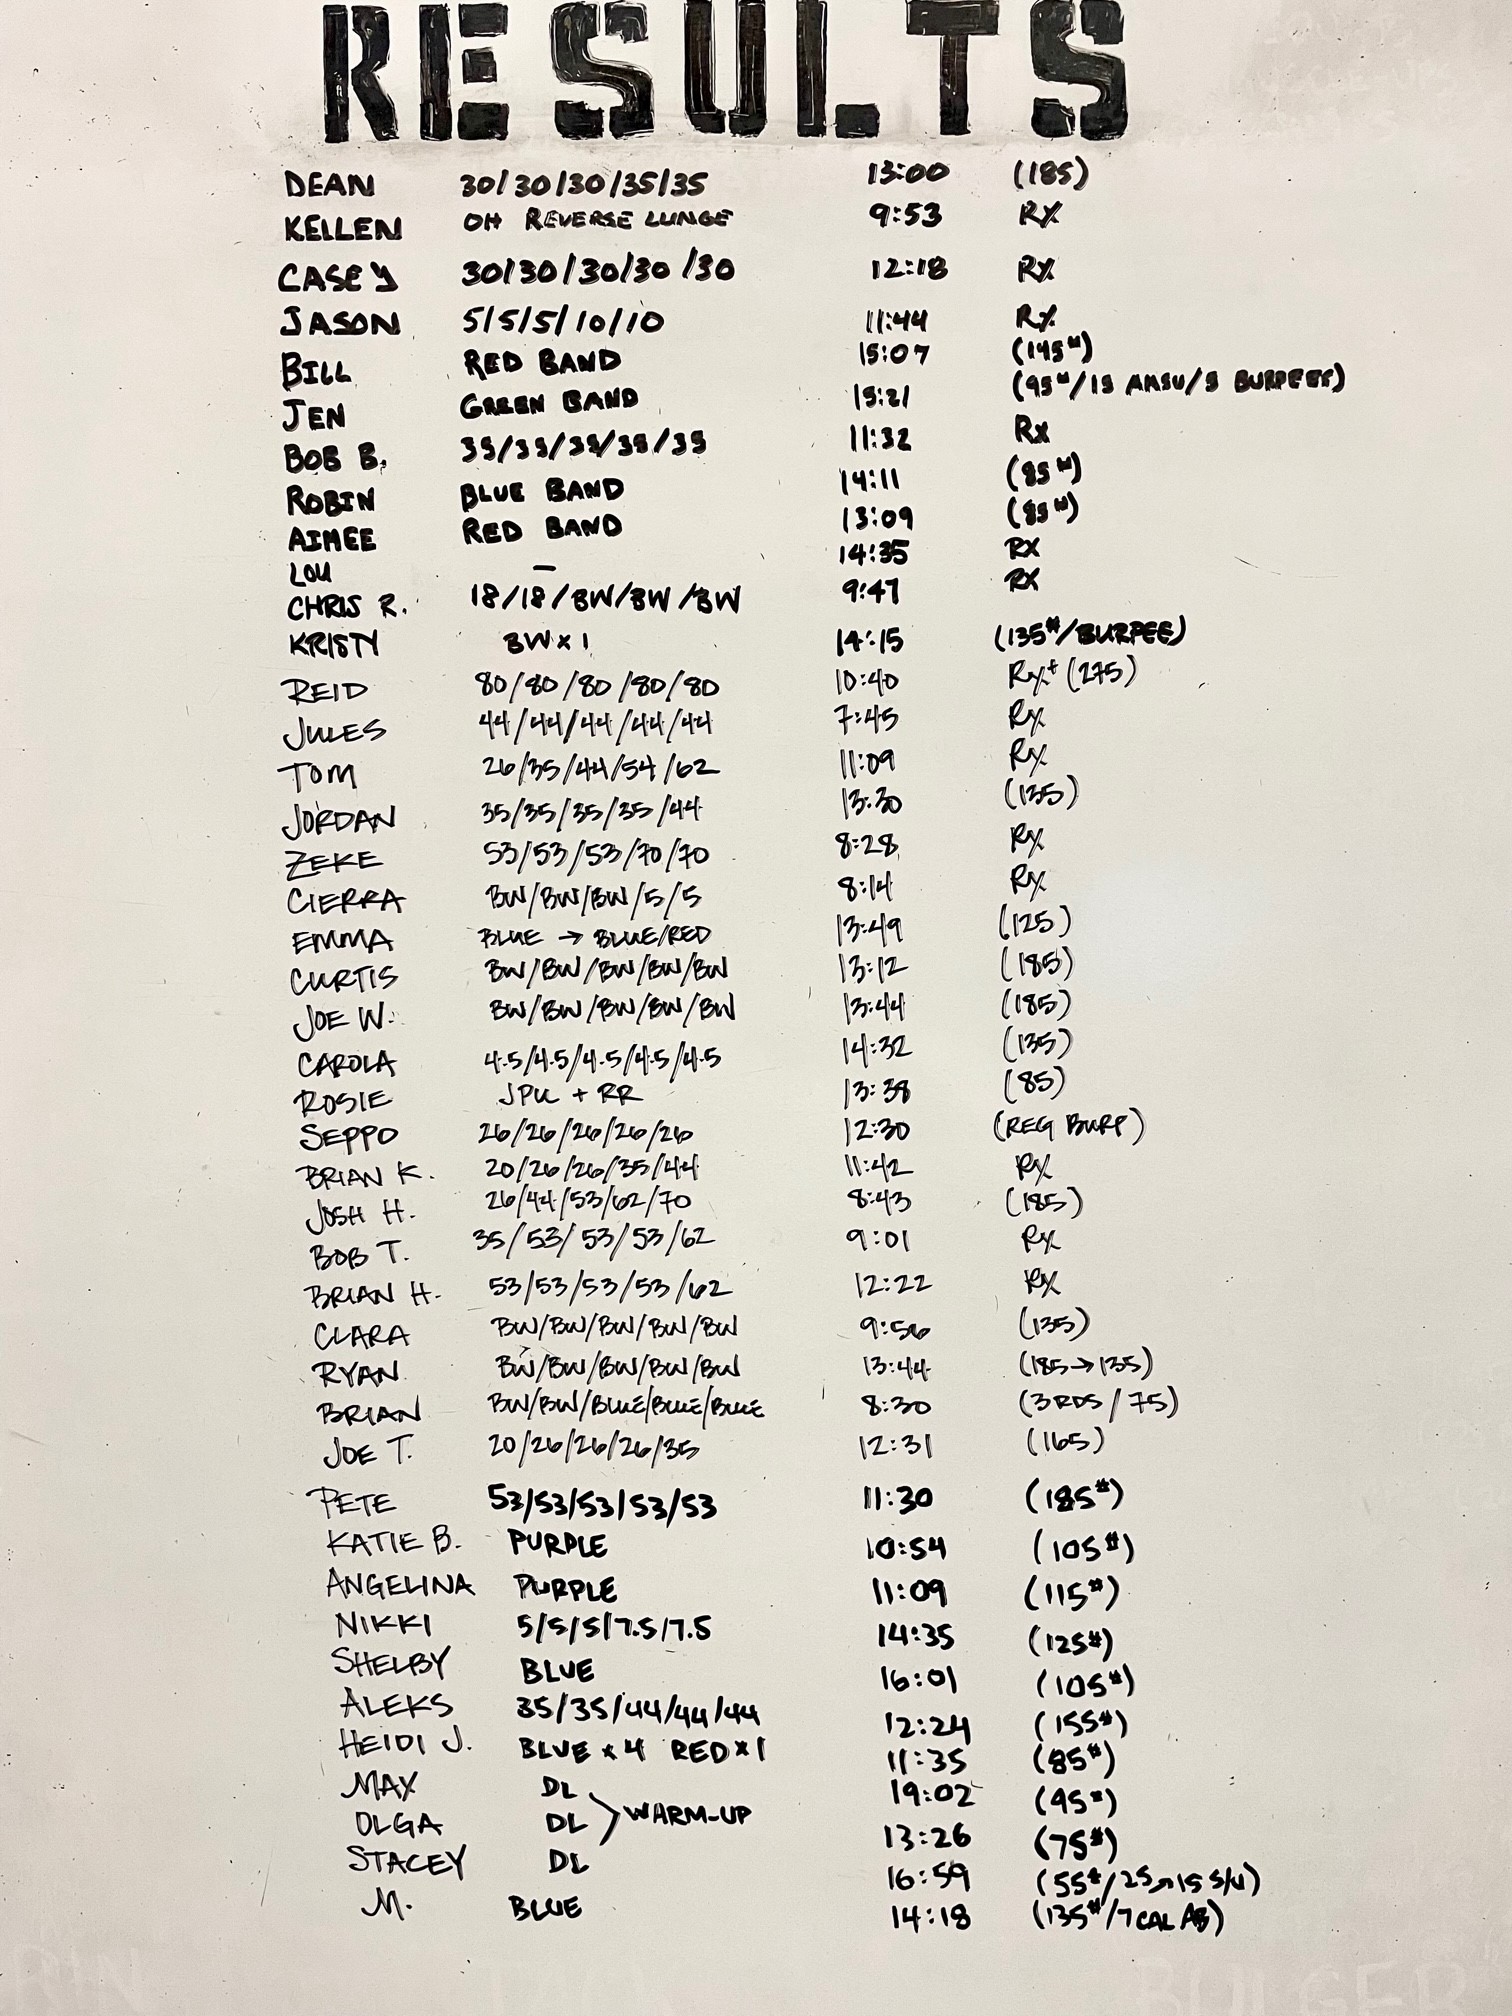 RESULTS
DEAN 30/30/30/35/35 13:00 (185)
KELLEN OH REVERSE LUNGE 9:53 RX
CASEY 30/30/30/30/30 12:18 RX
JASON 5/5/5/10/10 11:44 RX
BILL RED BAND 15:07 (145#)
JEN GREEN BAND 15:21 (95#/15 AMSU/5 BURPEES)
BOB B. 35/35/35/35/35 11:32 Rx
ROBIN BLUE BAND 14:11 (85#)
AIMEE RED BAND 13:09 (85#)
LOU – 14:35 RX
CHRIS R. 18/18/BW/BW/BW 9:47 RX
KRISTY BW x 1 14:15 (135#/BURPEE)
REID 80/80/80/80/80 10:40 Rx+ (275)
JULES 44/44/44/44/44 7:45 Rx
TOM 26/35/44/54/62 11:09 Rx
JORDAN 35/35/35/35/44 13:30 (135)
ZEKE 53/53/53/70/70 8:28 Rx
CIERRA BW/BW/BW/5/5 8:14 Rx
EMMA BLUE → BLUE/RED 13:49 (125)
CURTIS BW/BW/BW/BW/BW 13:12 (185)
JOE W. BW/BW/BW/BW/BW 13:44 (185)
CAROLA 4.5/4.5/4.5/4.5/4.5 14:32 (135)
ROSIE JPU + RR 13:38 (85)
SEPPO 26/26/26/26/26 12:30 (REG BURP)
BRIAN K. 20/26/26/35/44 11:42 Rx
JOSH H. 26/44/53/62/70 8:43 (185)
BOB T. 35/53/53/53/62 9:01 Rx
BRIAN H. 53/53/53/53/62 12:22 Rx
CLARA BW/BW/BW/BW/BW 9:56 (135)
RYAN BW/BW/BW/BW/BW 13:44 (185→135)
BRIAN BW/BW/BLUE/BLUE/BLUE 8:30 (3 RDS / 75)
JOE T. 20/26/26/26/35 12:31 (165)
PETE 53/53/53/53/53 11:30 (185#)
KATIE B. PURPLE 10:54 (105#)
ANGELINA PURPLE 11:09 (115#)
NIKKI 5/5/5/7.5/7.5 14:35 (125#)
SHELBY BLUE 16:01 (105#)
ALEKS 35/35/44/44/44 12:24 (155#)
HEIDI J. BLUE x 4 RED x 1 11:35 (85#)
MAX DL 19:02 (95#)
OLGA DL WARM-UP 13:26 (75#)
STACEY DL 16:59 (55#/25→15 S/U)
M. BLUE 14:18 (135#/7 CAL AB)